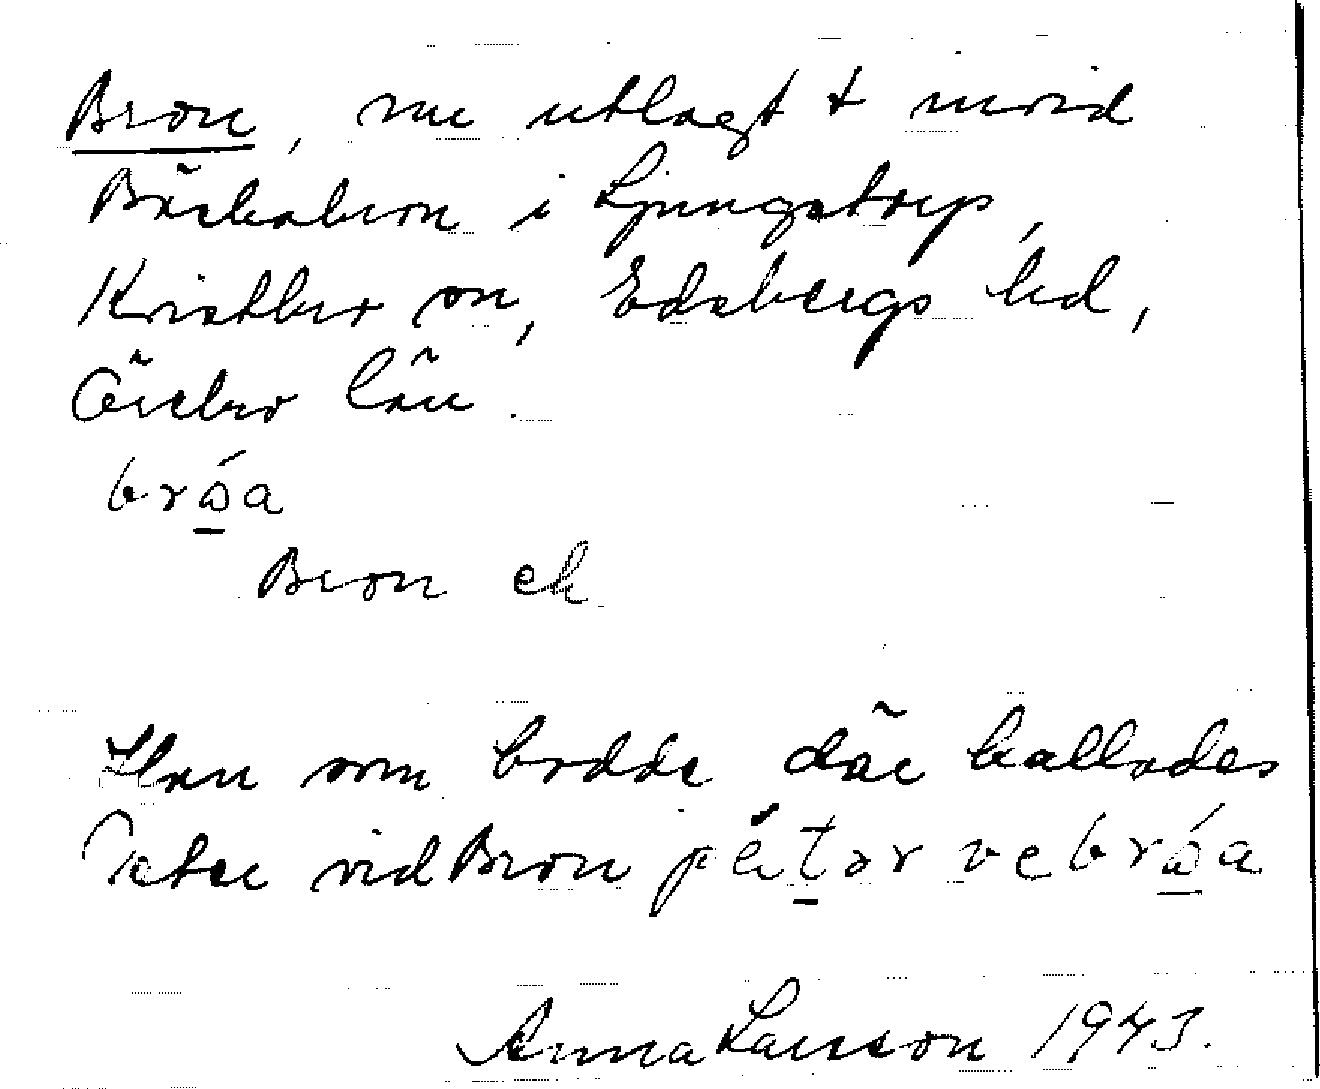 Bron, nu utlagt t invid
Bäckabron i Ljungstorp,
Kvistbro sn, Edsbergs hd,
Örebro län.
bròa
Bron ek
Han som bodde där kallades
Peter vid Bron pètər ve bròa
Anna Larsson 1943.